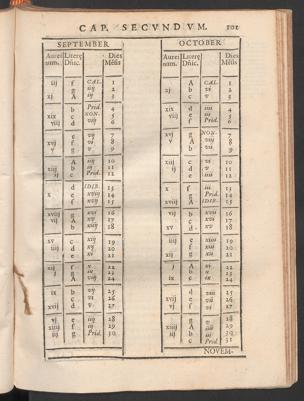 CAP. SECVNDVM. 101
SEPTEMBER
Aurei num. Literę Dńic. Dies Mẽsis
iij f CAL. 1
g iiij 2
xj A iij 3
b Prid. 4
xix c NON. 5
viij d viij 6
e vij 7
xvj f vj 8
v g v 9
A iiij 10
xiij b iij 11
ij c Prid. 12
d IDIB. 13
x e xviij 14
f xvij 15
xviij g xvi 16
vij A xv 17
b xiiij 18
xv c xiij 19
iiij d xij 20
e xi 21
xij f x 22
j g ix 23
A viij 24
ix b vij 25
c vi 26
xvij d v 27
vj e iiij 28
xiiij f iij 29
iij g Prid. 30
OCTOBER
Aurei num. Literę Dńic. Dies Mẽsis
A CAL. 1
xj b vi 2
c v 3
xix d iiij 4
viij e iij 5
f Prid. 6
xvj g NON. 7
v A viij 8
b vij 9
xiij c vi 10
ij d v 11
e iiij 12
x f iij 13
g Prid. 14
xviij A IDIB. 15
vij b xvij 16
c xvi 17
xv d xv 18
iiij e xiiij 19
f xiij 20
xij g xij 21
j A xi 22
b x 23
ix c ix 24
d viij 25
xvij e vij 26
vj f vi 27
g v 28
xiiij A iiij 29
iij b iij 30
c Prid. 31
NOVEM-